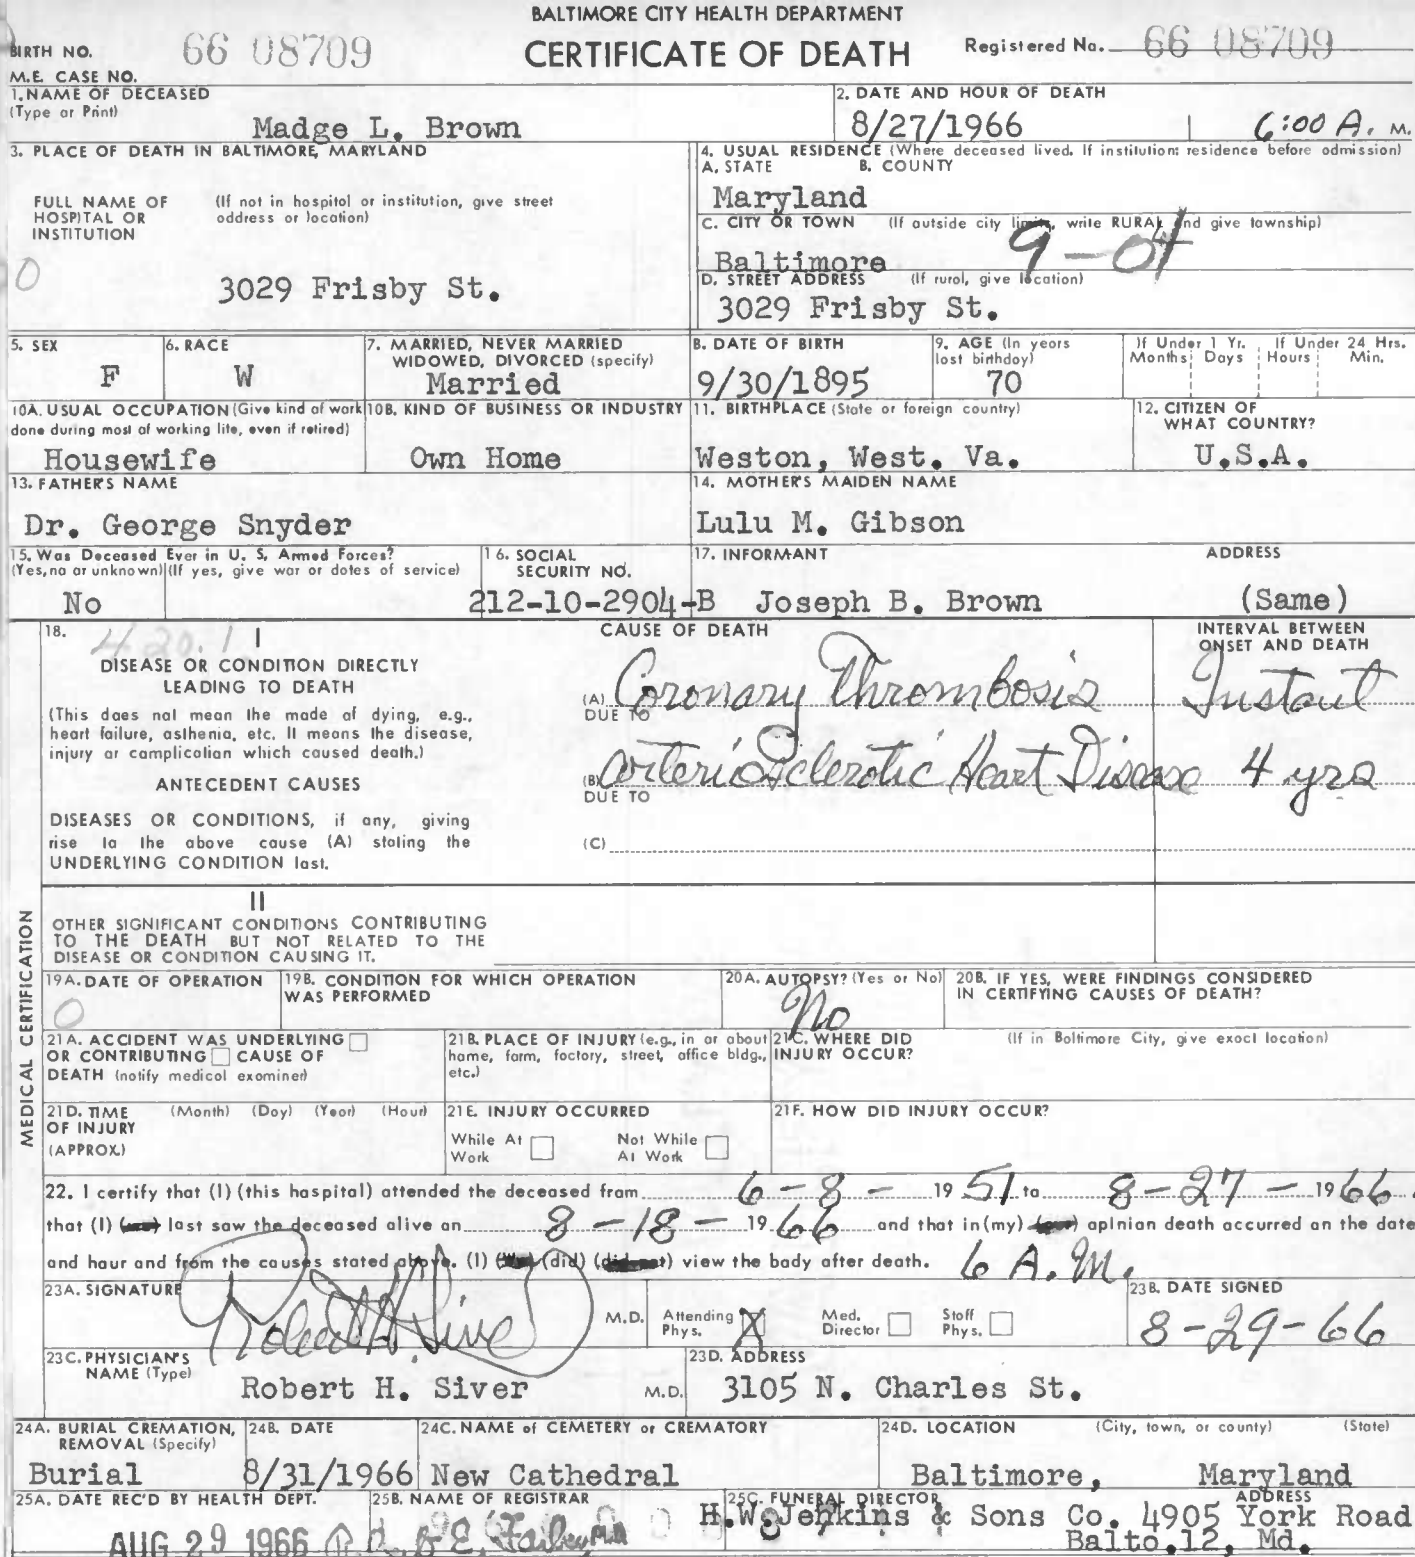 BALTIMORE CITY HEALTH DEPARTMENT
BIRTH NO. 66 08709 CERTIFICATE OF DEATH Registered No. 66 08709
M.E. CASE NO.
1. NAME OF DECEASED
(Type or Print)
Madge L. Brown
2. DATE AND HOUR OF DEATH
8/27/1966 6:00 A. M.
3. PLACE OF DEATH IN BALTIMORE, MARYLAND
FULL NAME OF HOSPITAL OR INSTITUTION
(If not in hospital or institution, give street address or location)
0
3029 Frisby St.
4. USUAL RESIDENCE (Where deceased lived. If institution: residence before admission)
A. STATE B. COUNTY
Maryland
C. CITY OR TOWN (If outside city limits, write RURAL and give township)
Baltimore 9-04
D. STREET ADDRESS (If rural, give location)
3029 Frisby St.
5. SEX
F
6. RACE
W
7. MARRIED, NEVER MARRIED WIDOWED, DIVORCED (specify)
Married
8. DATE OF BIRTH
9/30/1895
9. AGE (In years last birthday)
70
If Under 1 Yr. Months Days
If Under 24 Hrs. Hours Min.
10A. USUAL OCCUPATION (Give kind of work done during most of working life, even if retired)
Housewife
10B. KIND OF BUSINESS OR INDUSTRY
Own Home
11. BIRTHPLACE (State or foreign country)
Weston, West. Va.
12. CITIZEN OF WHAT COUNTRY?
U.S.A.
13. FATHER'S NAME
Dr. George Snyder
14. MOTHER'S MAIDEN NAME
Lulu M. Gibson
15. Was Deceased Ever in U. S. Armed Forces?
(Yes, no or unknown) (If yes, give war or dates of service)
No
16. SOCIAL SECURITY NO.
212-10-2904-B
17. INFORMANT ADDRESS
Joseph B. Brown (Same)
MEDICAL CERTIFICATION
18. 420.1 I
DISEASE OR CONDITION DIRECTLY
LEADING TO DEATH
(This does not mean the mode of dying, e.g.,
heart failure, asthenia, etc. It means the disease,
injury or complication which caused death.)
ANTECEDENT CAUSES
DISEASES OR CONDITIONS, if any, giving
rise to the above cause (A) stating the
UNDERLYING CONDITION last.
CAUSE OF DEATH
INTERVAL BETWEEN ONSET AND DEATH
(A) Coronary Thrombosis Instant
DUE TO
(B) Arterio Sclerotic Heart Disease 4 yrs
DUE TO
(C)
II
OTHER SIGNIFICANT CONDITIONS CONTRIBUTING
TO THE DEATH BUT NOT RELATED TO THE
DISEASE OR CONDITION CAUSING IT.
19A. DATE OF OPERATION
0
19B. CONDITION FOR WHICH OPERATION WAS PERFORMED
20A. AUTOPSY? (Yes or No)
No
20B. IF YES, WERE FINDINGS CONSIDERED IN CERTIFYING CAUSES OF DEATH?
21A. ACCIDENT WAS UNDERLYING
OR CONTRIBUTING CAUSE OF
DEATH (notify medical examiner)
21B. PLACE OF INJURY (e.g., in or about home, farm, factory, street, office bldg., etc.)
21C. WHERE DID INJURY OCCUR?
(If in Baltimore City, give exact location)
21D. TIME OF INJURY (APPROX.)
(Month) (Day) (Year) (Hour)
21E. INJURY OCCURRED
While At Work Not While At Work
21F. HOW DID INJURY OCCUR?
22. I certify that (I) (this hospital) attended the deceased from 6-8- 1951 to 8-27-1966.
that (I) last saw the deceased alive on 8-18-1966 and that in (my) opinion death occurred on the date
and hour and from the causes stated above. (I) (did) view the body after death. 6 A.M.
23A. SIGNATURE
Robert H. Siver M.D.
Attending Phys. X Med. Director Staff Phys.
23B. DATE SIGNED
8-29-66
23C. PHYSICIAN'S NAME (Type)
Robert H. Siver M.D.
23D. ADDRESS
3105 N. Charles St.
24A. BURIAL CREMATION, REMOVAL (Specify)
Burial
24B. DATE
8/31/1966
24C. NAME of CEMETERY or CREMATORY
New Cathedral
24D. LOCATION (City, town, or county) (State)
Baltimore, Maryland
25A. DATE REC'D BY HEALTH DEPT.
AUG 29 1966
25B. NAME OF REGISTRAR
25C. FUNERAL DIRECTOR ADDRESS
H.W. Jenkins & Sons Co. 4905 York Road
Balto.12, Md.